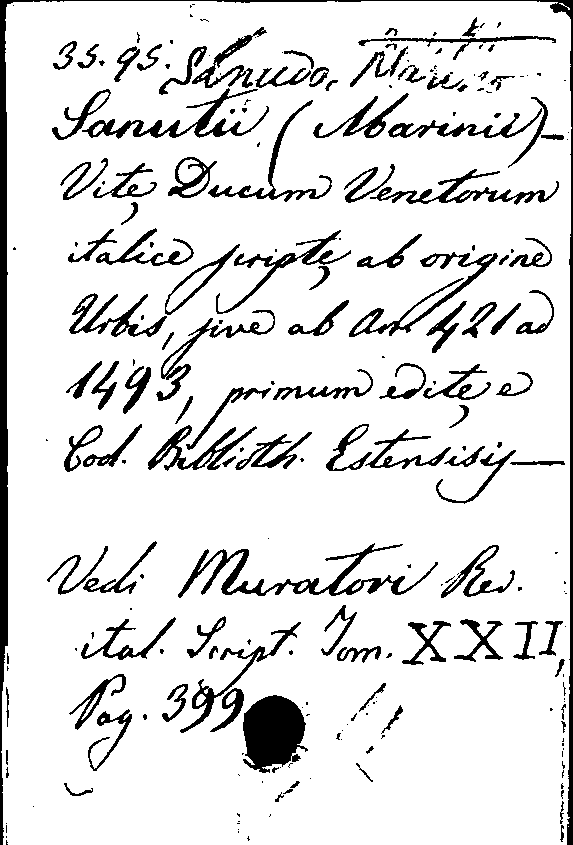 35.95. Sanudo, Marino
Sanutii (Marinii)—
Vitę Ducum Venetorum
italice scriptę ab origine
Urbis, sive ab An. 421 ad
1493, primum editę e
Cod. Biblioth. Estensis,—
Vedi Muratori Rer.
ital. Script. Tom. XXII,
Pag. 399